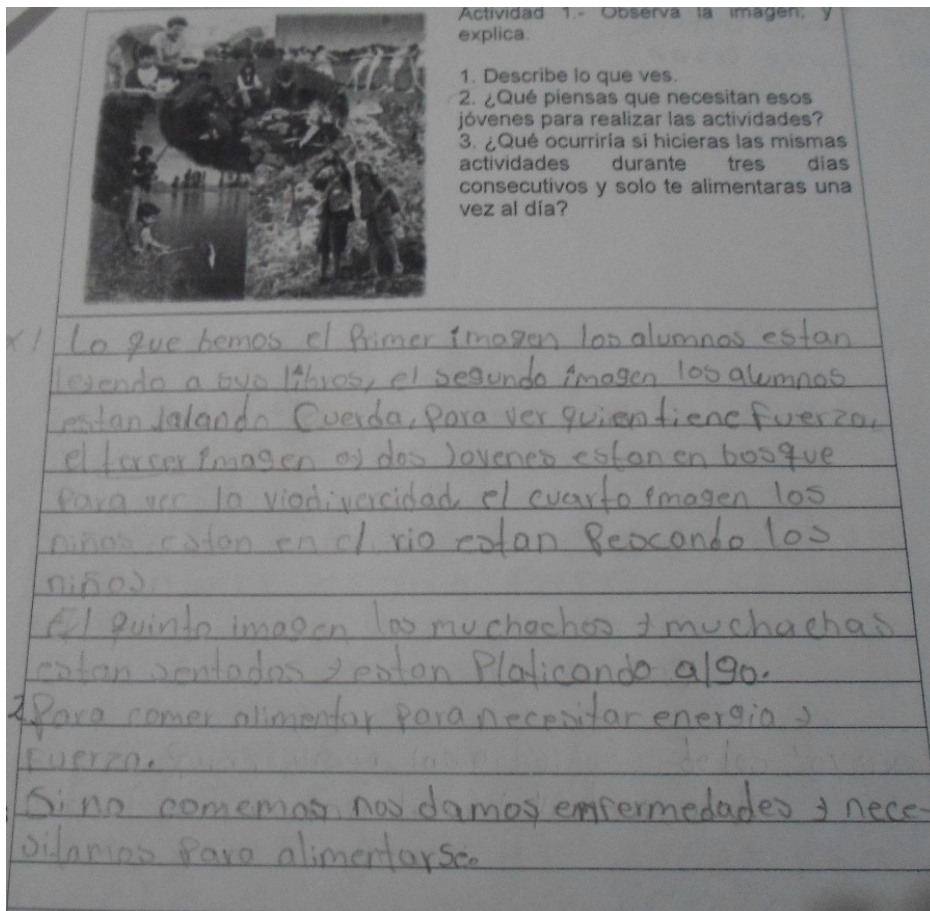 Actividad 1.- Observa la imagen, y
explica.
1. Describe lo que ves.
2. ¿Qué piensas que necesitan esos
jóvenes para realizar las actividades?
3. ¿Qué ocurriría si hicieras las mismas
actividades durante tres días
consecutivos y solo te alimentaras una
vez al día?
1 Lo que bemos el Primer imagen los alumnos estan
leyendo a suo libros, el segundo imagen los alumnos
estan Jalando Cuerda, para ver quien tiene fuerza,
el tercer imagen dos Jovenes estan en bosque
para ver la viodivercidad, el cuarto imagen los
niños estan en el rio estan Pescando los
niños.
El quinto imagen los muchachos y muchachas
estan sentados y estan Platicando algo.
2 Para comer alimentar para necesitar energia y
Fuerza.
Si no comemos nos damos enfermedades y nece-
sitamos Para alimentarse.